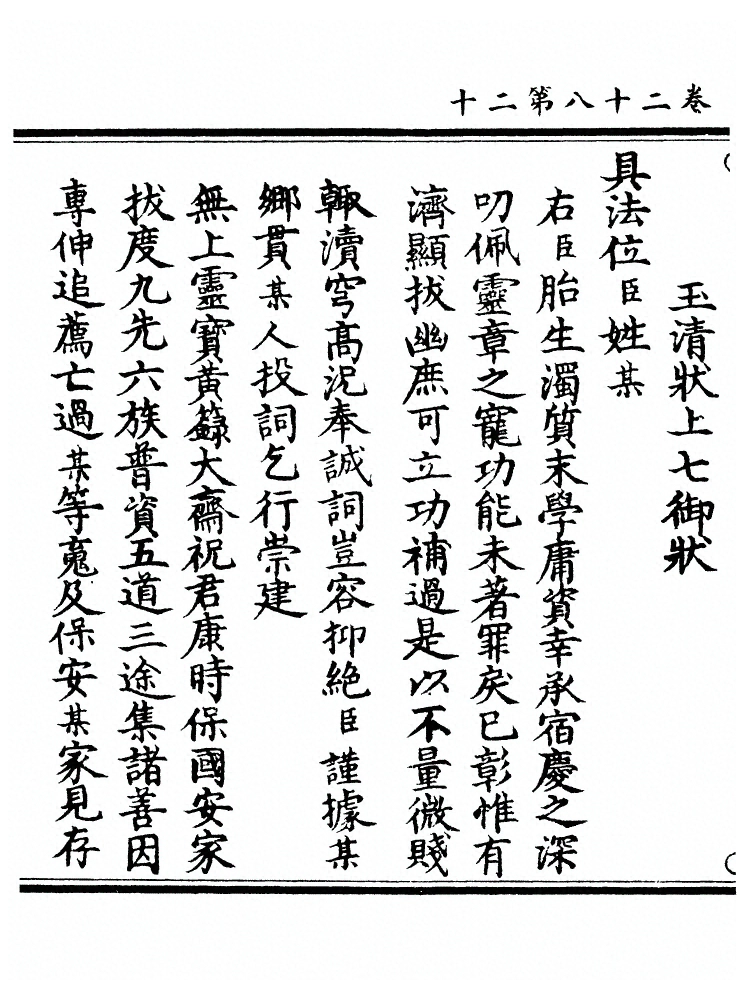 卷二十八第二十
玉清狀上七御狀
具法位臣姓某
右臣胎生濁質末學庸資幸承宿慶之深
叨佩靈章之寵功能未著罪戾已彰惟有
濟顯拔幽庶可立功補過是以不量微賤
輙瀆穹高況奉誠詞豈容抑絶臣謹據某
鄉貫某人投詞乞行崇建
無上靈寶黃籙大齋祝君康時保國安家
拔度九先六族普資五道三途集諸善因
專伸追薦亡過某等䰟及保安某家見存